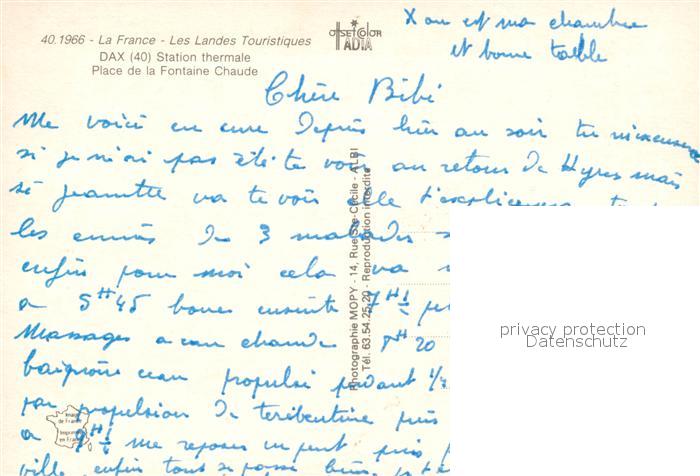 X ou est ma chambre
et bonne table
40.1966 - La France - Les Landes Touristiques
DAX (40) Station thermale
Place de la Fontaine Chaude
OFFSET COLOR
ADIA
Chère Bibi
Me voici en cure depuis hier au soir tu m'excusera
si je n'ai pas été te voir au retour de Hyères mais
si Jeannette va te voir elle t'expliquera
les ennuis des 3 malades
enfin pour moi cela va
a 5H45 boues ensuite 7H½
Massages a eau chaude 8H20
baignoire eau propulsé pendant ¼
par propulsion de térébentine puis
a 9H¼ me reposer un peu puis
ville, enfin tout se passe bien
Photographie MOPY - 14, Rue Ste-Cécile - ALBI
Tél. 63.54.25.20 - Reproduction interdite
Image
de France
Imprimé
en France
privacy protection
Datenschutz